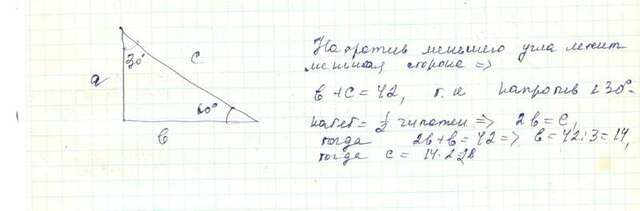 30°
c
a
60°
в
Напротив меньшего угла лежит
меньшая сторона =>
в + с = 42, т.к напротив ∠30°-
катет = 1/2 гипотен => 2в = с,
тогда 2в + в = 42 => в = 42:3 = 14,
тогда с = 14·2=28